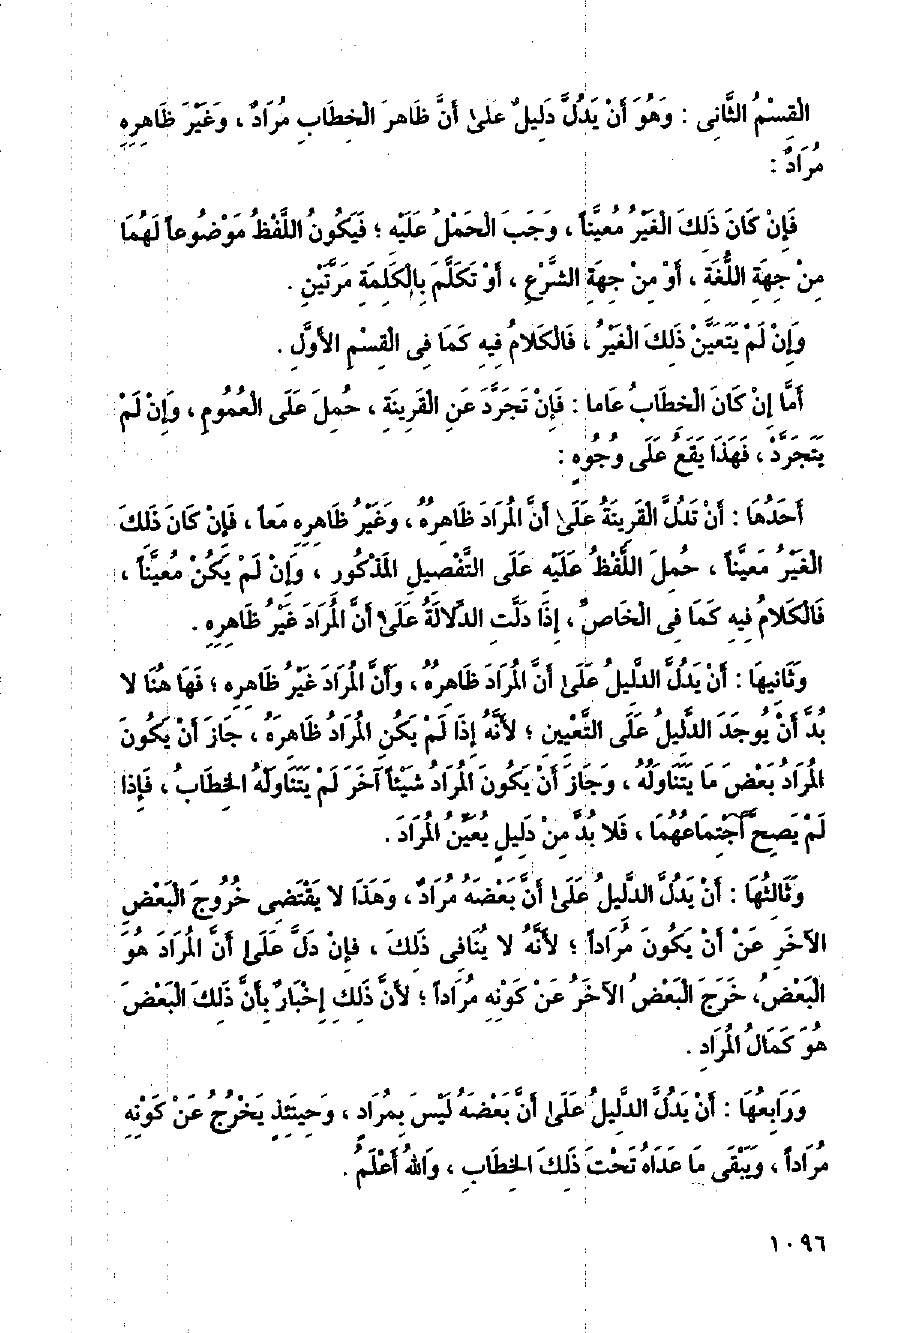 الْقِسْمُ الثَّانِى : وَهُوَ أَنْ يَدُلَّ دَلِيلٌ عَلَى أَنَّ ظَاهِرَ الْخِطَابِ مُرَادٌ ، وَغَيْرَ ظَاهِرِهِ
مُرَادٌ :
فَإِنْ كَانَ ذَلِكَ الْغَيْرُ مُعيَّناً ، وَجَبَ الْحَمْلُ عَلَيْهِ ؛ فَيَكُونُ اللَّفْظُ مَوْضُوعاً لَهُمَا
مِنْ جِهَةِ اللُّغَةِ ، أَوْ مِنْ جِهَةِ الشَّرْعِ ، أَوْ تَكَلَّمَ بِالْكَلِمَةِ مَرَّتَيْنِ .
وَإِنْ لَمْ يَتَعَيَّنْ ذَلِكَ الْغَيْرُ ، فَالْكَلامُ فِيهِ كَمَا فِى الْقِسْمِ الأَوَّلِ .
أَمَّا إِنْ كَانَ الْخِطَابُ عَاما : فَإِنْ تَجَرَّدَ عَنِ الْقَرِينَةِ ، حُمِلَ عَلَى الْعُمُومِ ، وَإِنْ لَمْ
يَتَجَرَّدْ ، فَهَذَا يَقَعُ عَلَى وُجُوهٍ :
أَحَدُهَا : أَنْ تَدُلَّ الْقَرِينَةُ عَلَى أَنَّ الْمُرَادَ ظَاهِرُهُ ، وَغَيْرُ ظَاهِرِهِ مَعاً ، فَإِنْ كَانَ ذَلِكَ
الْغَيْرُ مُعَيَّناً ، حُمِلَ اللَّفْظُ عَلَيْهِ عَلَى التَّفْصِيلِ الْمَذْكُورِ ، وَإِنْ لَمْ يَكُنْ مُعيَّناً ،
فَالْكَلامُ فِيهِ كَمَا فِى الْخَاصِّ ، إِذَا دَلَّتِ الدَّلالَةُ عَلَى أَنَّ الْمُرَادَ غَيْرُ ظَاهِرِهِ .
وَثَانِيهَا : أَنْ يَدُلَّ الدَّلِيلُ عَلَى أَنَّ الْمُرَادَ ظَاهِرُهُ ، وَأَنَّ الْمُرَادَ غَيْرُ ظَاهِرِهِ ؛ فَهَا هُنَا لا
بُدَّ أَنْ يُوجَدَ الدَّلِيلُ عَلَى التَّعْيِينِ ؛ لأَنَّهُ إِذَا لَمْ يَكُنِ الْمُرَادُ ظَاهِرَهُ ، جَازَ أَنْ يَكُونَ
الْمُرَادُ بَعْضَ مَا يَتَنَاوَلُهُ ، وَجَازَ أَنْ يَكُونَ الْمُرَادُ شَيْئاً آخَرَ لَمْ يَتَنَاوَلْهُ الْخِطَابُ ، فَإِذَا
لَمْ يَصِحَّ اجْتِمَاعُهُمَا ، فَلا بُدَّ مِنْ دَلِيلٍ يُعَيِّنُ الْمُرَادَ .
وَثَالِثُهَا : أَنْ يَدُلَّ الدَّلِيلُ عَلَى أَنَّ بَعْضَهُ مُرَادٌ ، وَهَذَا لا يَقْتَضِى خُرُوجَ الْبَعْضِ
الآخَرِ عَنْ أَنْ يَكُونَ مُرَاداً ؛ لأَنَّهُ لا يُنَافِى ذَلِكَ ، فإِنْ دَلَّ عَلَى أَنَّ الْمُرَادَ هُوَ
الْبَعْضُ، خَرَجَ الْبَعْضُ الآخَرُ عَنْ كَوْنِهِ مُرَاداً ؛ لأَنَّ ذَلِكَ إِخْبَارٌ بِأَنَّ ذَلِكَ الْبَعْضَ
هُوَ كَمَالُ الْمُرَادِ .
وَرَابِعُهَا : أَنْ يَدُلَّ الدَّلِيلُ عَلَى أَنَّ بَعْضَهُ لَيْسَ بِمُرَادٍ ، وَحِينَئِذٍ يَخْرُجُ عَنْ كَوْنِهِ
مُرَاداً ، وَيَبْقَى مَا عَدَاهُ تَحْتَ ذَلِكَ الخِطَابِ ، وَاللهُ أَعْلَمُ .
١٠٩٦